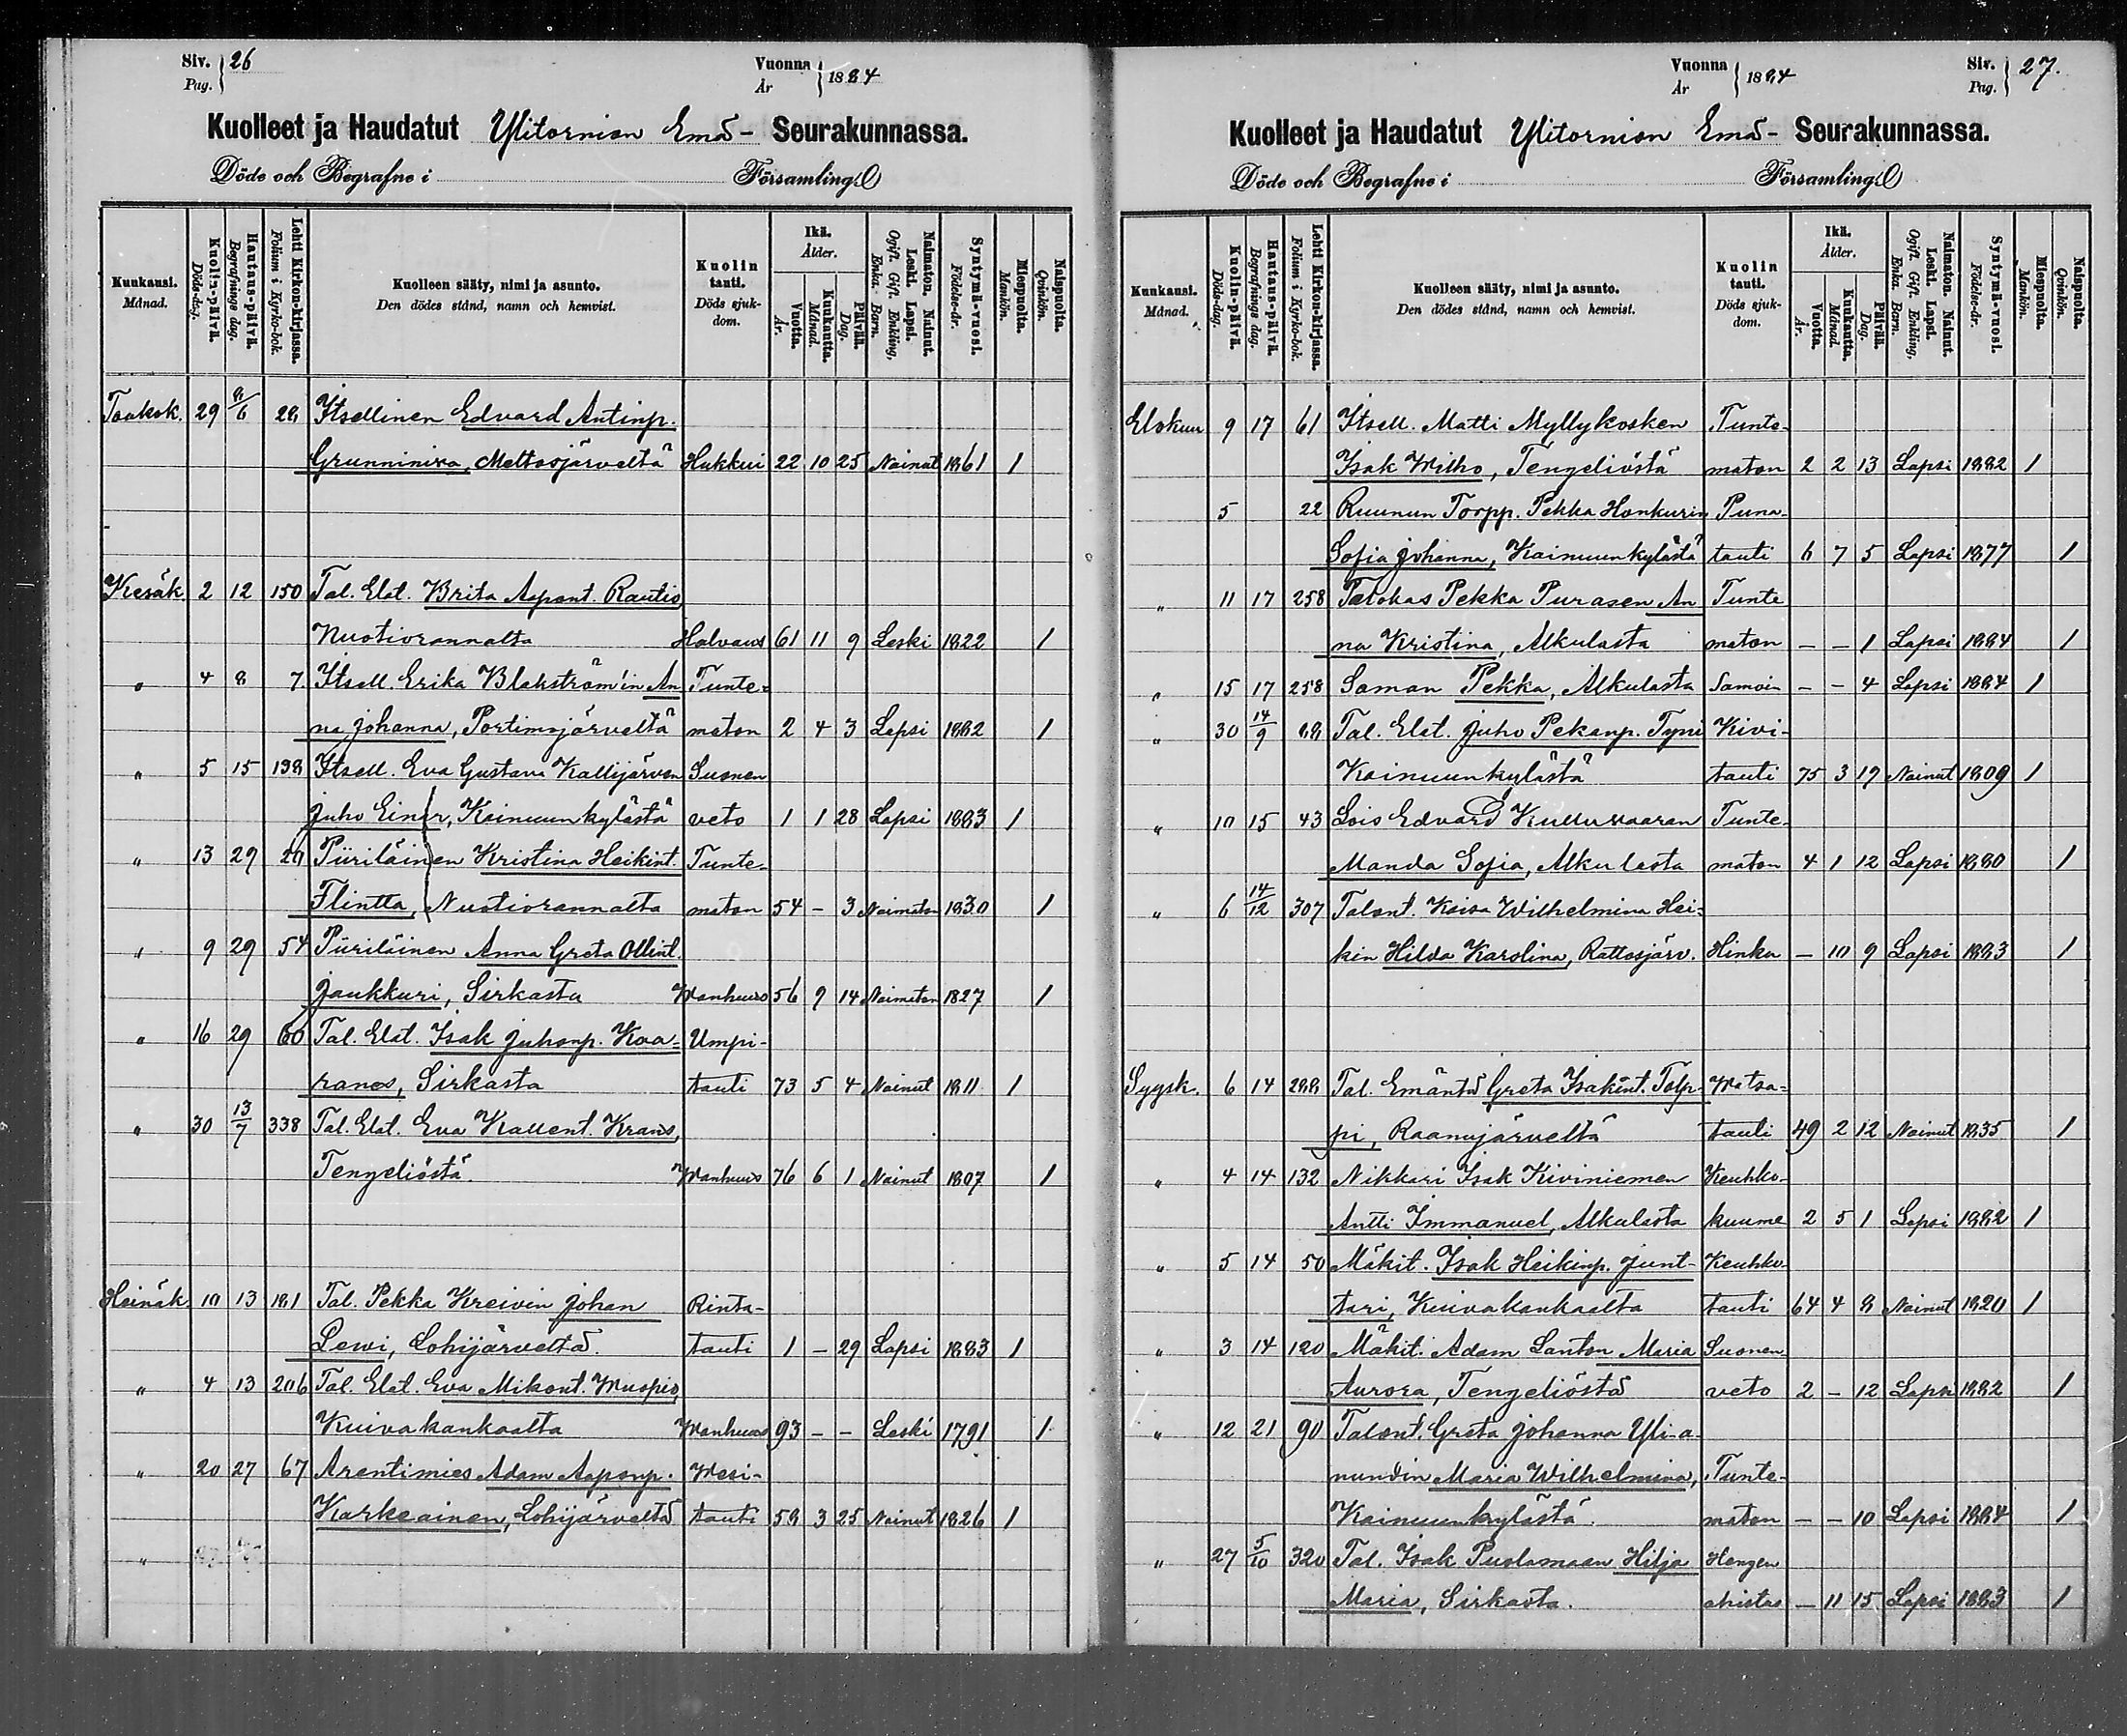 Siv. Pag. } 26
Vuonna År } 1884
Kuolleet ja Haudatut Ylitornion Emä- Seurakunnassa.
Döde och Begrafne i Församling.
Kuukausi. Månad.
Kuolin-päivä. Döds-dag.
Hautaus-päivä. Begrafnings dag.
Lehti Kirkon-kirjassa. Folium i Kyrko-bok.
Kuolleen sääty, nimi ja asunto. Den dödes stånd, namn och hemvist.
Kuolin tauti. Döds sjuk-dom.
Ikä. Ålder.
Vuotta. År.
Kuukautta. Månad.
Päivää. Dag.
Naimaton. Nainut. Leski. Lapsi. Ogift. Gift. Enkling, Enka. Barn.
Syntymä-vuosi. Födelse-år.
Miespuolta. Mankön.
Naispuolta. Qvinkön.
Toukok. 29 8/6 28 Itsellinen Edvard Antinp.
Grunniniva, Meltosjärveltä Hukkui 22 10 25 Nainut 1861 1
Kesäk. 2 12 150 Tal. Elät. Brita Aapont. Rautio
Nuotiorannalta Halvaus 61 11 9 Leski 1822 1
" 4 8 7 Itsell. Erika Blakström'in An
na Johanna, Portimojärveltä Tunte-
maton 2 4 3 Lapsi 1882 1
" 5 15 138 Itsell. Eva Gustava Kallijärven Suonen
Juho Einar, Kainuunkylästä veto 1 1 28 Lapsi 1883 1
" 13 29 29 Piiriläinen Kristina Heikint. Tunte-
Flintta, Nuotiorannalta maton 54 - 3 Naimaton 1830 1
" 9 29 54 Piiriläinen Anna Greta Ollint.
Jaukkuri, Sirkasta Wanhuus 56 9 14 Naimaton 1827 1
" 16 29 60 Tal. Elät. Isak Juhonp. Kaa= Umpi-
ranes, Sirkasta tauti 73 5 4 Nainut 1811 1
" 30 13/7 338 Tal. Elät. Eva Kallent. Krans,
Tengeliöstä. Wanhuus 76 6 1 Nainut 1807 1
Heinäk. 10 13 181 Tal. Pekka Kreivin Johan Rinta-
Lewi, Lohijärveltä. tauti 1 - 29 Lapsi 1883 1
" 4 13 206 Tal. Elät. Eva Mikont. Wuopio,
Kuivakankaalta Wanhuus 93 - - Leski 1791 1
" 20 27 67 Arentimies Adam Aaponp. Wesi-
Karkeainen, Lohijärveltä tauti 58 3 25 Nainut 1826 1
"
Vuonna År } 1884
Siv. Pag. } 27.
Kuolleet ja Haudatut Ylitornion Emä- Seurakunnassa.
Döde och Begrafne i Församling.
Kuukausi. Månad.
Kuolin-päivä. Döds-dag.
Hautaus-päivä. Begrafnings dag.
Lehti Kirkon-kirjassa. Folium i Kyrko-bok.
Kuolleen sääty, nimi ja asunto. Den dödes stånd, namn och hemvist.
Kuolin tauti. Döds sjuk-dom.
Ikä. Ålder.
Vuotta. År.
Kuukautta. Månad.
Päivää. Dag.
Naimaton. Nainut. Leski. Lapsi. Ogift. Gift. Enkling, Enka. Barn.
Syntymä-vuosi. Födelse-år.
Miespuolta. Mankön.
Naispuolta. Qvinkön.
Elokuu 9 17 61 Itsell. Matti Myllykosken Tunte-
Isak Wilho, Tengeliöstä maton 2 2 13 Lapsi 1882 1
5 22 Ruunun Torpp. Pekka Honkurin Puna-
Sofia Johanna, Kainuunkylästä tauti 6 7 5 Lapsi 1877 1
" 11 17 258 Pekka Purasen An Tunte
na Kristina, Alkulasta maton - - 1 Lapsi 1884 1
" 15 17 258 Saman Pekka, Alkulasta Samoin - - 4 Lapsi 1884 1
" 30 14/9 88 Tal. Elät. Juho Pekanp. Tyni Kivi-
Kainuunkylästä tauti 75 3 19 Nainut 1809 1
" 10 15 43 Lois Edvard Kulluvaaran Tunte-
Manda Sofia, Alkulasta maton 4 1 12 Lapsi 1880 1
" 6 14/12 307 Talont. Kaisa Wilhelmina Hei-
kin Hilda Karolina, Rattosjärv. Hinku - 10 9 Lapsi 1883 1
Syysk. 6 14 288 Tal. Emäntä Greta Isakint. Tolp- Watsa=
pi, Raanujärveltä tauti 49 2 12 Nainut 1835 1
" 4 14 132 Nikkari Isak Kiviniemen Keuhko-
Antti Immanuel, Alkulasta kuume 2 5 1 Lapsi 1882 1
" 5 14 50 Mäkit. Isak Heikinp. Junt- Keuhko-
tari, Kuivakankaalta tauti 64 4 8 Nainut 1820 1
" 3 14 120 Mäkit. Adam Lanton Maria Suonen
Aurora, Tengeliöstä veto 2 - 12 Lapsi 1882 1
" 12 21 90 Talont. Greta Johanna Yli-a-
nundin Maria Wilhelmina, Tunte-
Kainuunkylästä. maton - - 10 Lapsi 1884 1
" 27 5/10 320 Tal. Isak Puolamaan Hilja Hengen
Maria, Sirkasta. ahistus - 11 15 Lapsi 1883 1